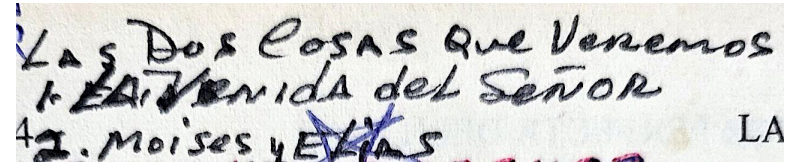 Las Dos Cosas que Veremos
1. LA Venida del Señor
2. Moises y Elias LA